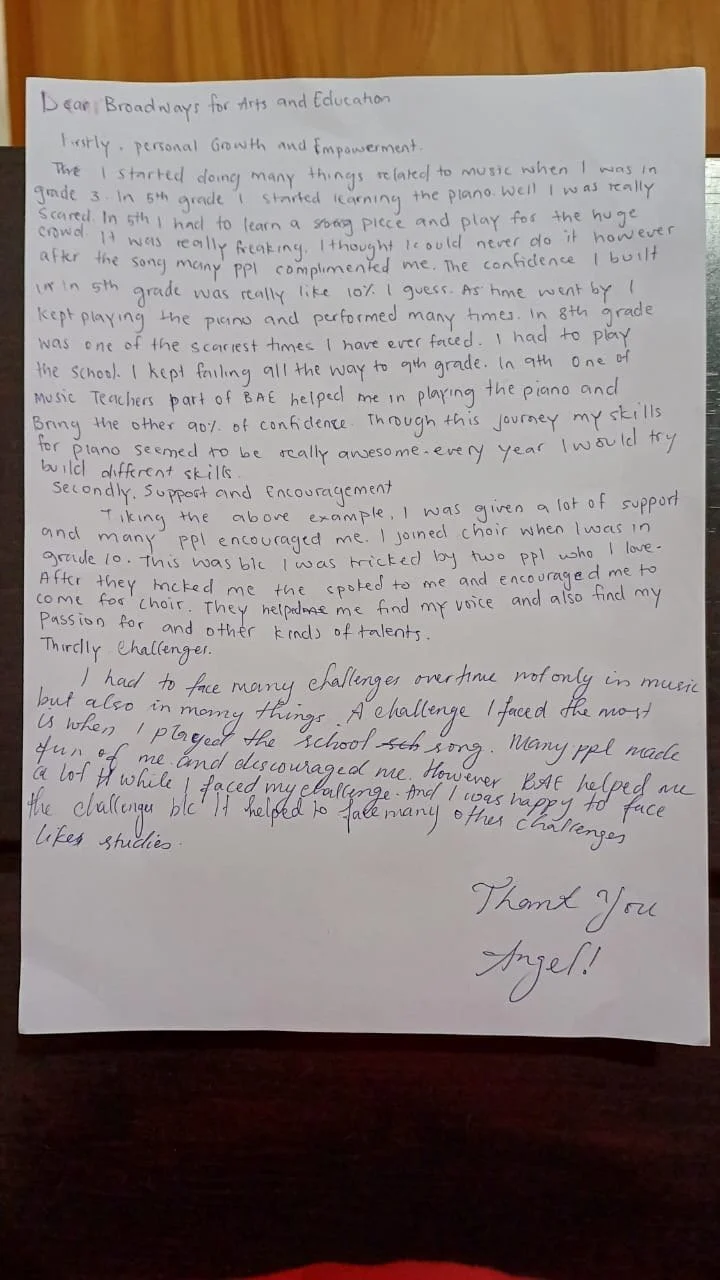 Dear Broadways for Arts and Education
Firstly, personal Growth and Empowerment.
The I started doing many things related to music when I was in
grade 3. In 5th grade I started learning the piano. Well I was really
Scared. In 5th I had to learn a song piece and play for the huge
crowd. It was really freaking. I thought I could never do it however
after the song many ppl complimented me. The confidence I built
in 5th grade was really like 10% I guess. As time went by I
kept playing the piano and performed many times. In 8th grade
was one of the scariest times I have ever faced. I had to play
the school. I kept failing all the way to 9th grade. In 9th one of
Music Teachers part of BAE helped me in playing the piano and
Bring the other 90% of confidence. Through this journey my skills
for piano seemed to be really awesome. every year I would try
build different skills.
Secondly, Support and Encouragement
Tiking the above example, I was given a lot of support
and many ppl encouraged me. I joined choir when I was in
grade 10. This was b/c I was tricked by two ppl who I love.
After they tricked me the spoked to me and encouraged me to
come for choir. They helped me find my voice and also find my
Passion for and other kinds of talents.
Thirdly Challenges.
I had to face many challenges overtime not only in music
but also in many things. A challenge I faced the most
is when I played the school sch song. Many ppl made
fun of me and discouraged me. However BAE helped me
a lot while I faced my challenge. And I was happy to face
the challenges b/c It helped to face many other challenges
likes studies.
Thank You
Angel!